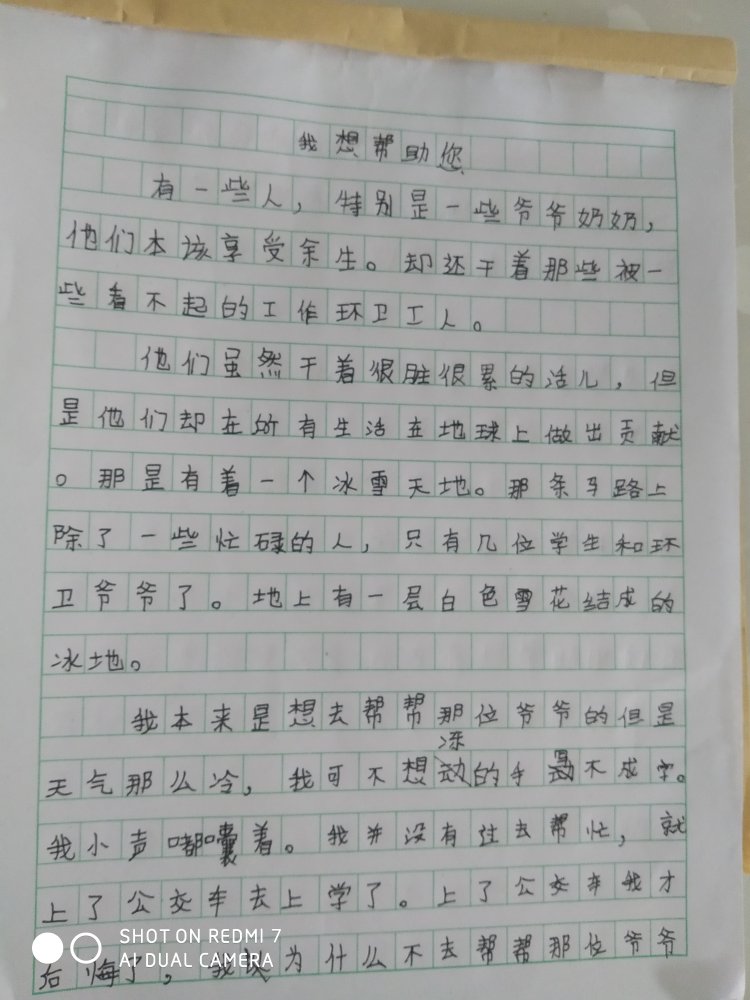 我想帮助您
有一些人，特别是一些爷爷奶奶，
他们本该享受余生。却还干着那些被一
些看不起的工作环卫工人。
他们虽然干着很脏很累的活儿，但
是他们却在所有生活在地球上做出贡献
。那是有着一个冰雪天地。那条马路上
除了一些忙碌的人，只有几位学生和环
卫爷爷了。地上有一层白色雪花结成的
冰地。
我本来是想去帮帮那位爷爷的但是
冻
天气那么冷，我可不想的手不成字。
我小声嘟囔着。我并没有过去帮忙，就
上了公交车去上学了。上了公交车我才
后悔了，我为什么不去帮帮那位爷爷
SHOT ON REDMI 7
AI DUAL CAMERA